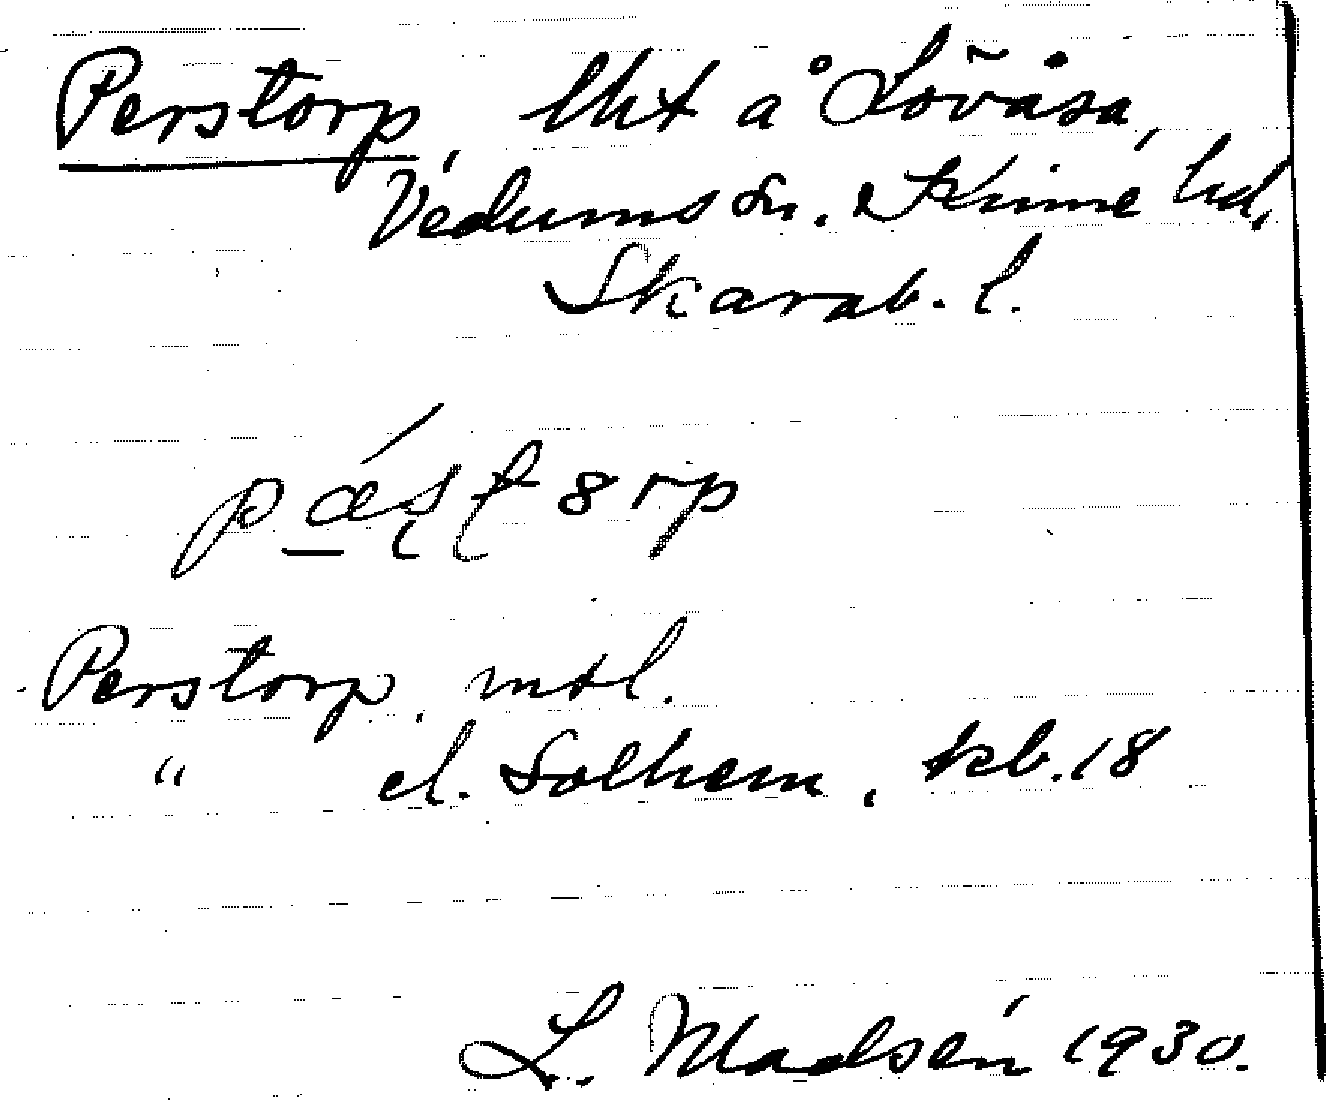 Perstorp, lht å Lövåsa,
Vedums sn. Kinne hd,
Skarab. l.
Perstorp, mtl.
" el. Solhem, kb. 18
L. Madsén 1930.